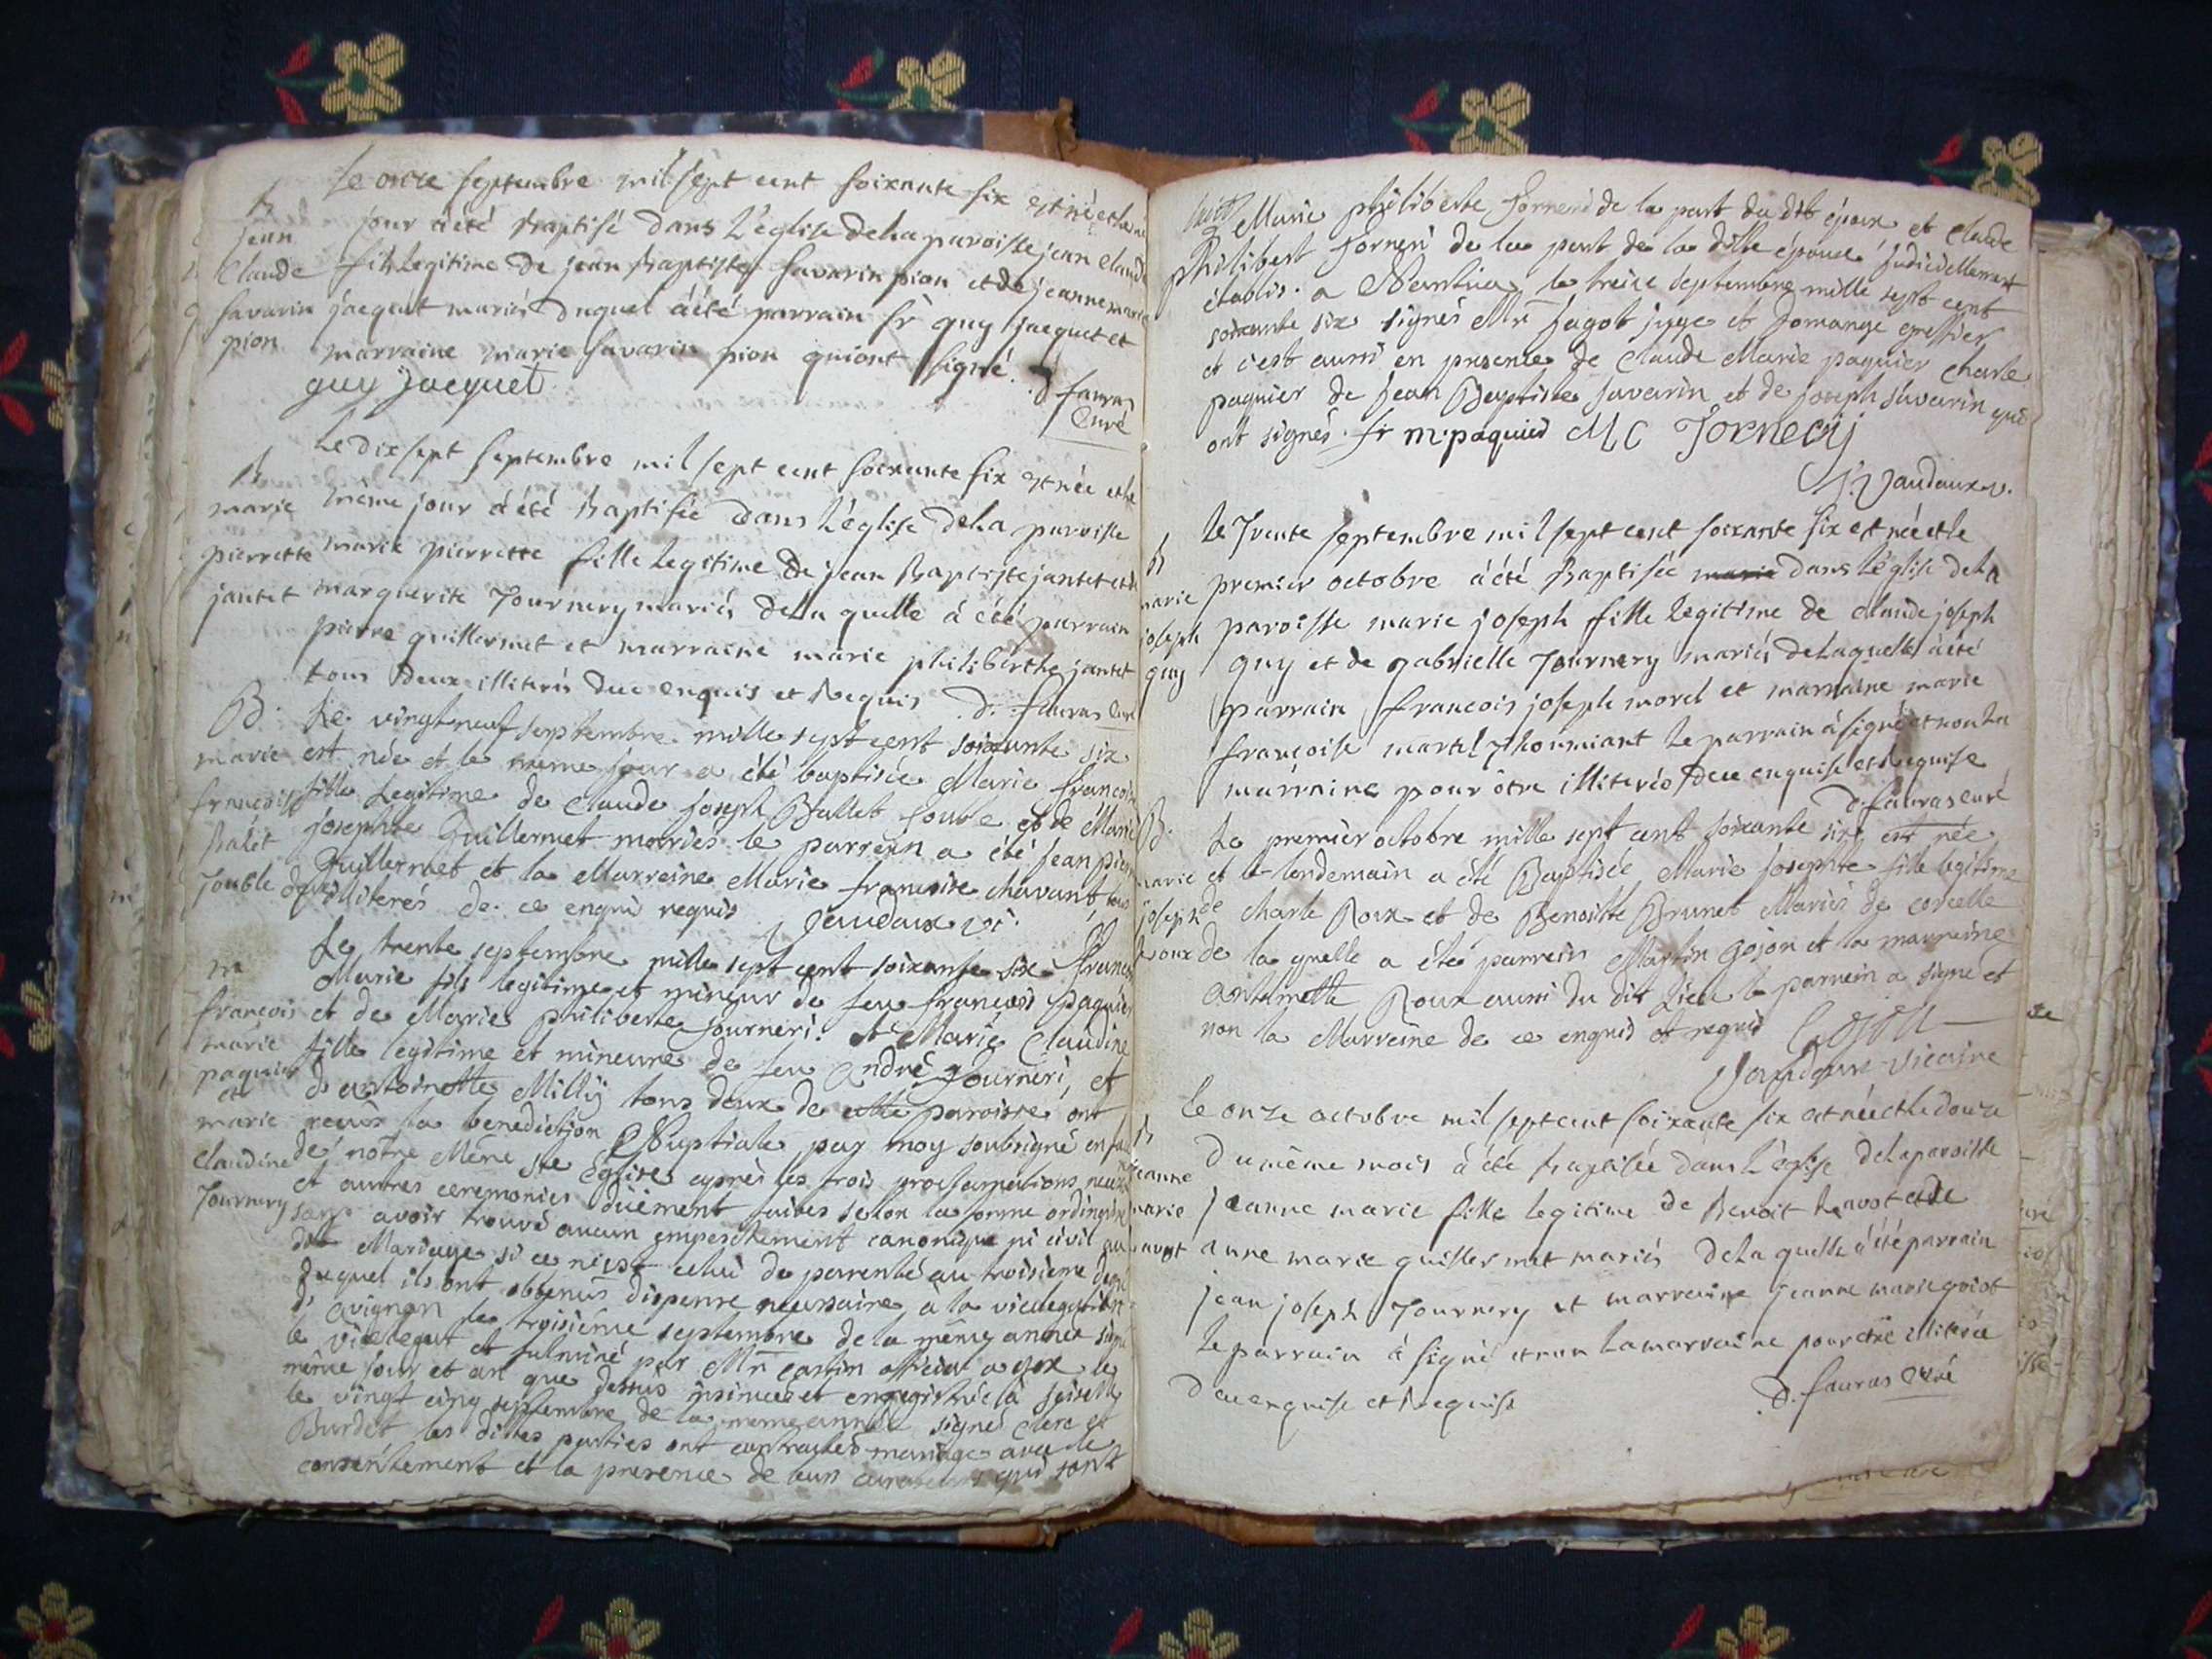 Le onze septembre mil sept cent soixante six est né et le même
B
jean
Claude
Savarin
pion
jour a été baptisé dans l'église de la paroisse jean claude
fils legitime de jean baptiste savarin pion et de jeanne marie
jacquet mariés duquel a été parrain sr guy jacquet et
marraine marie savarin pion qui ont signé.
guy jacquet
d fauras
curé
Le dix sept septembre mil sept cent soixante six est née et le
B
marie
pierrette
jantet
même jour a été baptisée dans l'église de la paroisse
marie pierrette fille legitime de jean baptiste jantet et de
marguerite Tournery mariés de la quelle a été parrain
pierre guillermet et marraine marie philiberthe jantet
tous deux illiterés de ce enquis et requis D. fauras curé
B.
marie
françoise
Balet
Le vingt neuf septembre mille sept cent soixante six
est née et le meme jour a été baptisée Marie françoise
fille legitime de Claude joseph Ballet et de Marie
josephte Guillermet mariés le parrein a été jean pierre
Guillermet et la Marreine Marie françoise chavant tous
deux illiterés de ce enqui requis
Vaudaux vi.
M
françois
marie
paquier
et
marie
claudine
Tournery
Le trente septembre mille sept cent soixante six françois
Marie fils legitime et mineur de feu françois paquier
et de Marie philiberte journeri. et Marie Claudine
fille legitime et mineure de feu André journeri, et
d'antoinette Milliy tous deux de cette paroisse ont
recus la benediction Nuptiale par moy soubsigné en face
de notre Mère Ste Eglise après les trois proclamations
et autres ceremonies düement faites selon la forme ordinaire
sans avoir trouvé aucun empeschement canonique ni civil au
dit Mariage si ce n'est celui de parenté au troisieme degré
duquel ils ont obtenus dispense necessaire à la vicelegation
d'avignon le troisiéme septembre de la même année signé
le vicelegat et fulminé par Mr cartin official a gex le
même jour et an que dessus insinuée et enregistrée à
le vingt cinq septembre de la meme année signé clerc et
Burdet les dites parties ont contractés mariage avec le
consentement et la presence de leurs curateurs qui sont
Marie philiberte Forneri de la part du dit époux et Claude
philibert Forneri de la part de la ditte épouse judiciellement
établis. a Nantua le treize septembre mille sept cent
soixante six signés Mr jagot juge et Domange greffier
et c'est aussi en presence de Claude Marie paquier Charle
paquier de jean Baptiste savarin et de joseph savarin qui
ont signés. fr m. paquier M C Jornerij
Vaudaux v.
B
marie
joseph
guy
Le Trente septembre mil sept cent soixante six est née et le
premier octobre a été baptisée marie dans l'église de la
paroisse marie joseph fille legitime de claude joseph
guy et de gabrielle Tournery mariés de laquelle a été
parrain francois joseph morel et marraine marie
françoise martel le parrain a signé et non la
marraine pour être illiterée de ce enquise et requise
d. fauras curé
B.
marie
joseph
roux
Le premier octobre mille sept cent soixante six est née
et le lendemain a été Baptisée Marie josephte fille legitime
de charle Roux et de Benoitte Brunet Mariés de corcelle
de la quelle a été parrein Martin gojon et la marreine
antoinette Roux aussi du dit Lieu le parrein a signé et
non la Marreine de ce enquis et requis
Gojon
Vaudaux vicaire
B
jeanne
marie
Le onze octobre mil sept cent soixante six est née et le douze
du même mois a été baptisée dans l'église de la paroisse
jeanne marie fille legitime de Benoit et de
anne marie guillermet mariés de la quelle a été parrain
jean joseph Tournery et marraine jeanne marie
le parrain a signé et non la marraine pour être illiterée
de ce enquise et requise
D. fauras curé